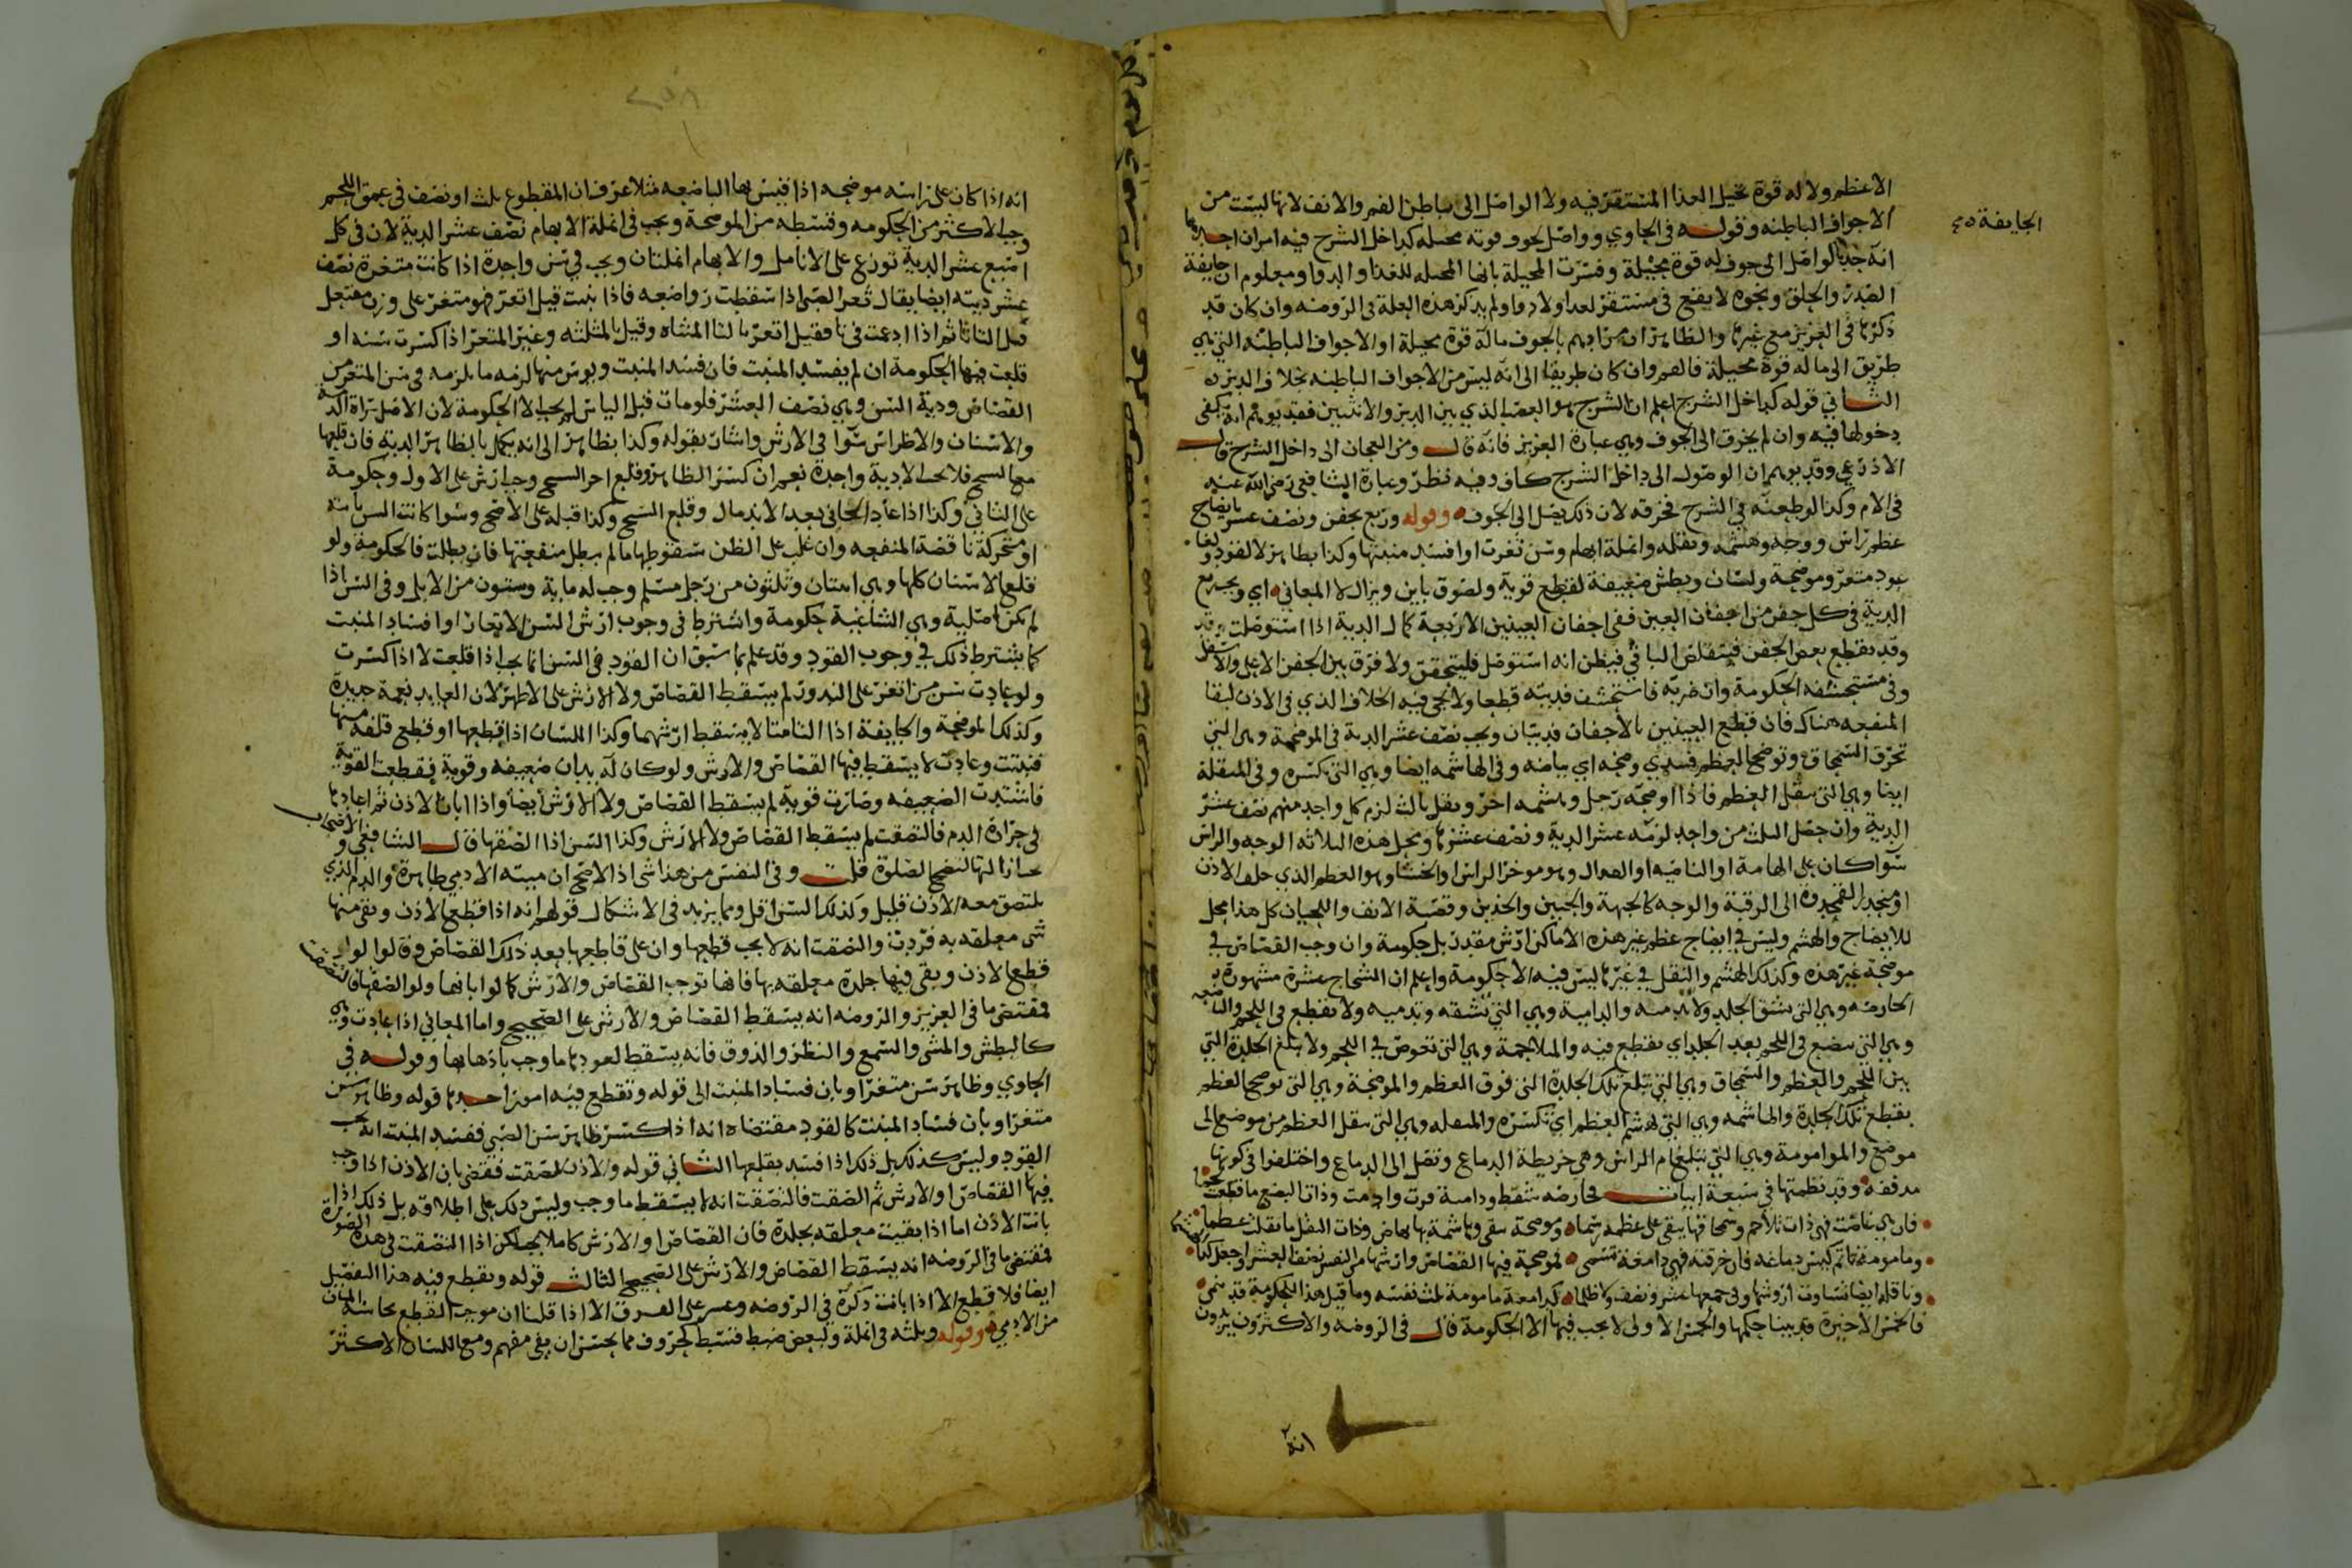 الاعظم ولا له قوة تحيل الغذا المستقر فيه ولا الواصل الى باطن الفم والانف لانها ليست من
الجايفة
الاجواف الباطنه وقوله في الحاوي وواصل لجوف قوته محيله كداخل الشرج فيه امران احدهما
انه جعل الواصل الى جوف له قوة محيلة وفسرت المحيلة بانها المحيله للغذا والدوا ومعلوم ان جايفة
الصدر والحلق ونحوه لا يقع في مستقر لغدا ولا دوا ولم يذكر هذه العلة في الروضه وان كان قد
ذكرها في العزيز مع غيرها والظاهر ان مرادهم بالجوف ماله قوة محيلة او الاجواف الباطنه التي هي
طريق الى ماله قوة محيلة فالفم وان كان طريقا الى انه ليس من الاجواف الباطنه بخلاف الدبر
الثاني قوله كداخل الشرج اعلم ان الشرج هو العصب الذي بين الدبر والانثيين فقد يوهم انه يكفي
دخولها فيه وان لم يخرق الى الجوف وهي عبارة العزيز فانه قال ومن العجان الى داخل الشرج قال
الاذرعي وقد يوهم ان الوصول الى داخل الشرج كاف وفيه نظر وعبارة الشافعي رضي الله عنه
في الام وكذا لو طعنه في الشرج فخرقه لان ذلك يصل الى الجوف وقوله وربع بجفن ونصف عشر بايضاح
عظم راس ووجه وهشمه ونقله وانملة ابهام وسن ثغرت او افسد منبتها وكذا بظاهر لا لقود ولغا
عود متغر وموضحة ولسان وبطش ضعيفة لقطع قوية ولصوق باين ويزال لا المعاني اي ويجب ربع
الدية في كل جفن من اجفان العين ففي اجفان العينين الاربعة كمال الدية اذا استوصلت وقد
وقد يقطع بعض الجفن فيتقلص الباقي فيظن انه استوصل فليتحقق ولا فرق بين الجفن الاعلى والاسفل
وفي مستحشفه الحكومة وان ضربه فاستحشف فديته قطعا ولا يجي فيه الخلاف الذي في الاذن لبقا
المنفعه هناك فان قطع العينين بالاجفان فديتان ويجب نصف عشر الدية في الموضحة وهي التي
تخرق السمحاق وتوضح العظم فتبدي وضحه اي بياضه وفي الهاشمه ايضا وهي التي تكسره وفي المنقلة
ايضا وهي التي تنقل العظم فاذا اوضحه رجل وهشمه اخر ونقل ثالث لزم كل واحد منهم نصف عشر
الدية وان حصل الثلث من واحد لزمه عشر الدية ونصف عشرها ومحل هذه الثلاثه الوجه والراس
سوا كان على الهامة او الناصيه او القذال وهو موخر الراس او الخششا وهو العظم الذي خلف الاذن
او منحدر القمحدوة الى الرقبة والوجه كالجبهة والجبين والخدين وقصبة الانف واللحيان كل هذا محل
للايضاح والهشم وليس في ايضاح عظم غير هذه الاماكن ارش مقدر بل حكومة وان وجب القصاص في
موضحة غير هذه وكذلك الهشم والنقل في غيرها ليس فيه الا حكومة واعلم ان الشجاج عشرة مشهورة
الحارصه وهي التي تشق الجلد ولا تدميه والدامية وهي التي تشقه وتدميه ولا تقطع في اللحم والباضعه
وهي التي تبضع في اللحم بعد الجلد اي تقطع فيه والمتلاحمة وهي التي تغوص في اللحم ولا تبلغ الجلدة التي
بين اللحم والعظم والسمحاق وهي التي تبلغ تلك الجلدة التي فوق العظم والموضحة وهي التي توضح العظم
بقطع تلك الجلدة والهاشمه وهي التي تهشم العظم اي تكسره والمنقله وهي التي تنقل العظم من موضع الى
موضع والمامومة وهي التي تبلغ ام الراس وهي خريطة الدماغ وتصل الى الدماغ واختلفوا في كونها
مدففة وقد نظمتها في سبعة ابيات
وناقلة ايضا تساوت اروشها وفي جمعها عشر ونصف
فالخمس الاخيرة قد بينا حكمها والخمس الاولى لا يجب فيها الا الحكومة قال في الروضه والاكثرون
انه
انه اذا كان على راسه موضحه اذا قيس بها الباضعه مثلا عرف ان المقطوع ثلث او نصف في عمق اللحم
وجب الاكثر من الحكومه وقسطه من الموضحة ويجب في انملة الابهام نصف عشر الدية لان في كل
اصبع عشر الدية توزع على الانامل والابهام انملتان ويجب في سن واحدة اذا كانت متغرة نصف
عشر ديته ايضا يقال ثغر الصبي اذا سقطت رواضعه فاذا نبتت قيل اتغر فهو متغر على وزن مفتعل
قلعت فيها الحكومة ان لم يفسد المنبت فان فسد المنبت ويوس منها لزمه ما يلزمه في سن المتغر من
القصاص ودية السن وهي نصف العشر فلو مات قبل الياس لم يجب الا الحكومة لان الاصل براة الذمة
والاسنان والاضراس سوا في الارش واشار بقوله وكذا بظاهر الى انه يكمل بالظاهر الدية فان قلعها
مع السنخ فلا يجب الا دية واحدة نعم ان كسر الظاهر وقلع اخر السنخ وجب ارش على الاول وحكومة
على الثاني وكذا اذا عاد الجاني بعد الاندمال وقلع السنخ وكذا قبله على الاصح وسوا كانت السن ثابتة
او متحركة ناقصة المنفعه وان غلب على الظن سقوطها ما لم يبطل منفعتها فان بطلت فالحكومة ولو
قلع الاسنان كلها وهي اثنتان وثلثون من رجل مسلم وجب له ماية وستون من الابل وفي السن اذا
لم تكن اصلية وهي الشاغية حكومة واشترط في وجوب ارش السن الاثغار او افساد المنبت
كما يشترط ذلك في وجوب القود وقد علم بما سبق ان القود في السن انما يجب اذا قلعت لا اذا كسرت
ولو عادت سن من اتغر على الندور لم يسقط القصاص ولا الارش على الاظهر لان العايد نعمة جديدة
وكذلك الموضحة والجايفة اذا التامتا لا يسقط ارشهما وكذا اللسان اذا قطعها او قطع فلقة منها
فنبتت وعادت لا يسقط فيها القصاص والارش ولو كان له يدان ضعيفه وقوية فقطعت القوية
فاشتدت الضعيفه وصارت قوية لم يسقط القصاص ولا الارش ايضا واذا ابان الاذن ثم اعادها
في حرارة الدم فالتصقت لم يسقط القصاص ولا الارش وكذا السن اذا الصقها قال الشافعي والاصحاب
ازالتها لتصح الصلوة قلت وفي النفس من هذا شي اذ الاصح ان ميته الادمي طاهرة والدم الذي
يلتصق معه الاذن قليل وكذلك السن اقل ومما يزيد في الاشكال قولهم انه اذا قطع الاذن وبقي منها
شي معلقه به فردت والتصقت انه لا يجب قطعها وان على قاطعها بعد ذلك القصاص وقالوا لو
قطع الاذن وبقي فيها جلدة معلقه بها فانها توجب القصاص والارش كما لو ابانها ولو الصقها فالتصقت
فمقتضى ما في العزيز والروضه انه يسقط القصاص والارش على الصحيح واما المعاني اذا عادت وهي
كالبطش والمشي والسمع والنظر والذوق فانه يسقط لعودها ما وجب باذهابها وقوله في
الحاوي وظاهر سن متغر او بان فساد المنبت الى قوله وتقطع فيه امور احدها قوله وظاهر سن
متغر او بان فساد المنبت كالقود مقتضاه انه اذا كسر ظاهر سن الصبي ففسد المنبت انه يجب
القود وليس كذلك بل ذلك اذا فسد بقلعها الثاني قوله والاذن لصقت فقضى بان الاذن اذا وجب
فيها القصاص او الارش ثم الصقت فالتصقت انه لا يسقط ما وجب وليس ذلك على اطلاقه بل ذلك اذا
بانت الاذن اما اذا بقيت معلقه بجلدة فان القصاص او الارش كاملا يجب لكن اذا التصقت في هذه الصورة
فمقتضى ما في الروضه انه يسقط القصاص والارش على الصحيح الثالث قوله وتقطع فيه هذا التفصيل
ايضا فلا قطع الا اذا بانت ذكره في الروضه وعسر على الفرق الا اذا قلنا ان موجب القطع نجاسة المبان
من الادمي وقوله وثلثه في انملة ولبعض ضبط قسط كحروف مما يحسن ان بقي مفهم ومع اللسان الاكثر